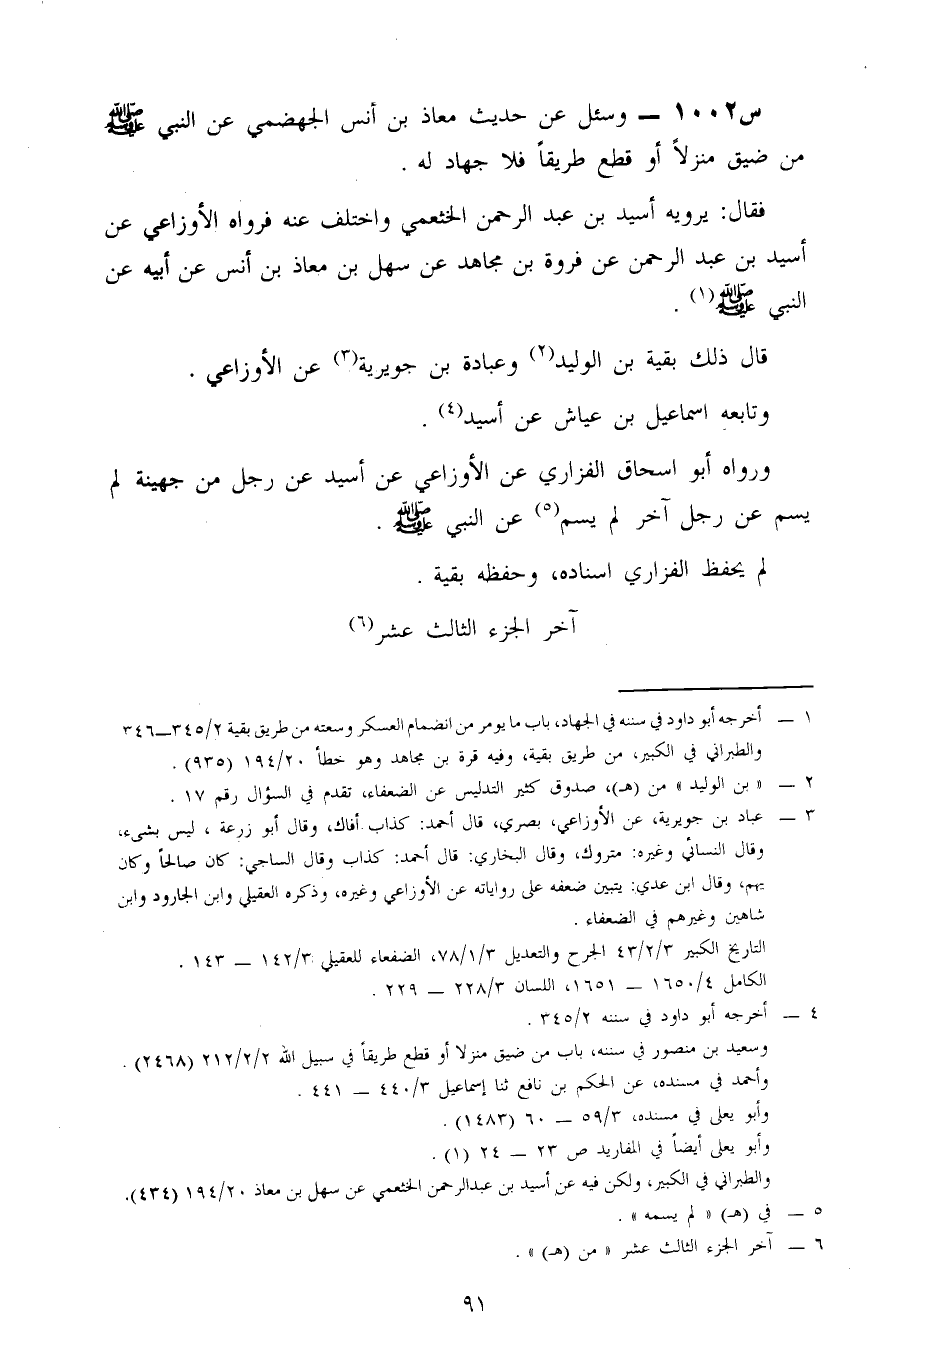 س١٠٠٢ ــ وسئل عن حديث معاذ بن أنس الجهضمي عن النبي ﷺ
من ضيق منزلاً أو قطع طريقاً فلا جهاد له .
فقال: يرويه أسيد بن عبد الرحمن الخثعمي واختلف عنه فرواه الأوزاعي عن
أسيد بن عبد الرحمن عن فروة بن مجاهد عن سهل بن معاذ بن أنس عن أبيه عن
النبي ﷺ(١) .
قال ذلك بقية بن الوليد(٢) وعبادة بن جويرية(٣) عن الأوزاعي .
وتابعه اسماعيل بن عياش عن أسيد(٤) .
ورواه أبو اسحاق الفزاري عن الأوزاعي عن أسيد عن رجل من جهينة لم
يسم عن رجل آخر لم يسم(٥) عن النبي ﷺ .
لم يحفظ الفزاري اسناده، وحفظه بقية .
آخر الجزء الثالث عشر(٦)
١ ــ أخرجه أبو داود في سننه في الجهاد، باب ما يومر من انضمام العسكر وسعته من طريق بقية ٣٤٥/٢ــ٣٤٦
والطبراني في الكبير، من طريق بقية، وفيه قرة بن مجاهد وهو خطأ ١٩٤/٢٠ (٩٣٥) .
٢ ــ « بن الوليد » من (هـ)، صدوق كثير التدليس عن الضعفاء، تقدم في السؤال رقم ١٧ .
٣ ــ عباد بن جويرية، عن الأوزاعي، بصري، قال أحمد: كذاب أفاك، وقال أبو زرعة ، ليس بشىء،
وقال النسائي وغيره: متروك، وقال البخاري: قال أحمد: كذاب وقال الساجي: كان صالحاً وكان
يهم، وقال ابن عدي: يتبين ضعفه على رواياته عن الأوزاعي وغيره، وذكره العقيلي وابن الجارود وابن
شاهين وغيرهم في الضعفاء .
التاريخ الكبير ٤٣/٢/٣ الجرح والتعديل ٧٨/١/٣، الضفعاء للعقيلي ١٤٢/٣ ــ ١٤٣ .
الكامل ١٦٥٠/٤ ــ ١٦٥١، اللسان ٢٢٨/٣ ــ ٢٢٩ .
٤ ــ أخرجه أبو داود في سننه ٣٤٥/٢ .
وسعيد بن منصور في سننه، باب من ضيق منزلا أو قطع طريقاً في سبيل الله ٢١٢/٢/٢ (٢٤٦٨) .
وأحمد في مسنده، عن الحكم بن نافع ثنا إسماعيل ٤٤٠/٣ ــ ٤٤١ .
وأبو يعلى في مسنده، ٥٩/٣ ــ ٦٠ (١٤٨٣) .
وأبو يعلى أيضاً في المفاريد ص ٢٣ ــ ٢٤ (١) .
والطبراني في الكبير، ولكن فيه عن أسيد بن عبدالرحمن الخثعمي عن سهل بن معاذ ١٩٤/٢٠ (٤٣٤).
٥ ــ في (هـ) « لم يسمه » .
٦ ــ آخر الجزء الثالث عشر « من (هـ) » .
٩١